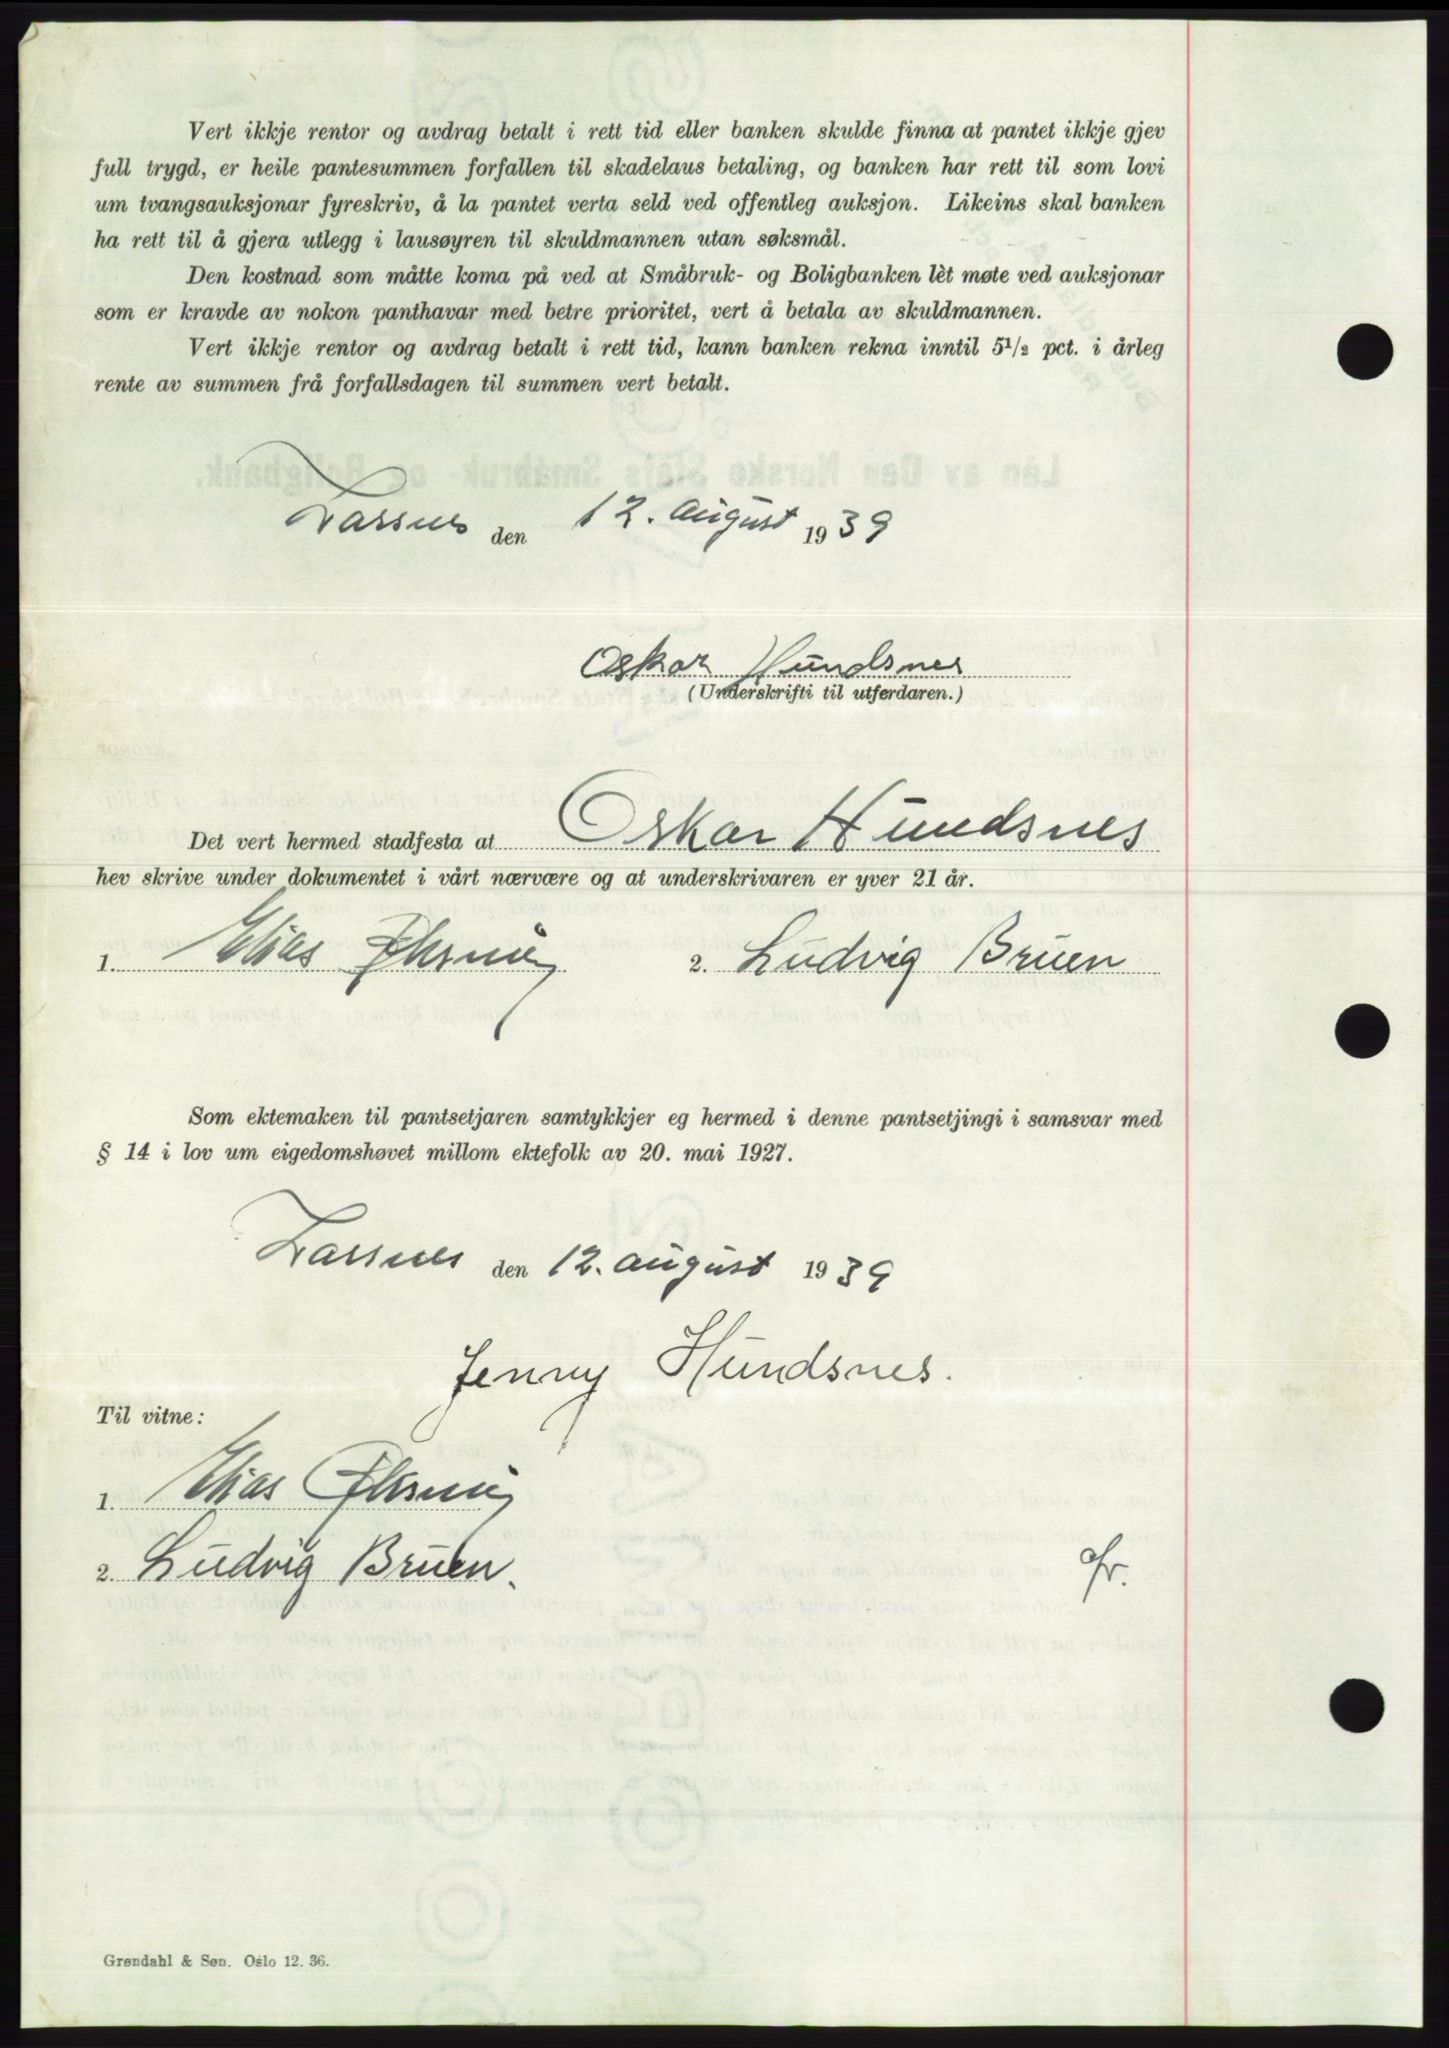 Vert ikkje rentor og avdrag betalt i rett tid eller banken skulde finna at pantet ikkje gjev
full trygd, er heile pantesummen forfallen til skadelaus betaling, og banken har rett til som lovi
um tvangsauksjonar fyreskriv, å la pantet verta seld ved offentleg auksjon. Likeins skal banken
ha rett til å gjera utlegg i lausøyren til skuldmannen utan søksmål.
Den kostnad som måtte koma på ved at Småbruk- og Boligbanken lèt møte ved auksjonar
som er kravde av nokon panthavar med betre prioritet, vert å betala av skuldmannen.
Vert ikkje rentor og avdrag betalt i rett tid, kann banken rekna inntil 5½ pct. i årleg
rente av summen frå forfallsdagen til summen vert betalt.
den 12. august 1939
Oskar Hundsnes
(Underskrifti til utferdaren.)
Det vert hermed stadfesta at Oskar Hundsnes
hev skrive under dokumentet i vårt nærvære og at underskrivaren er yver 21 år.
1. Elias 2. Ludvig Bruen
Som ektemaken til pantsetjaren samtykkjer eg hermed i denne pantsetjingi i samsvar med
§ 14 i lov um eigedomshøvet millom ektefolk av 20. mai 1927.
den 12. august 1939
Jenny Hundsnes.
Til vitne:
1. Elias
2. Ludvig Bruen.
Grøndahl & Søn. Oslo 12. 36.